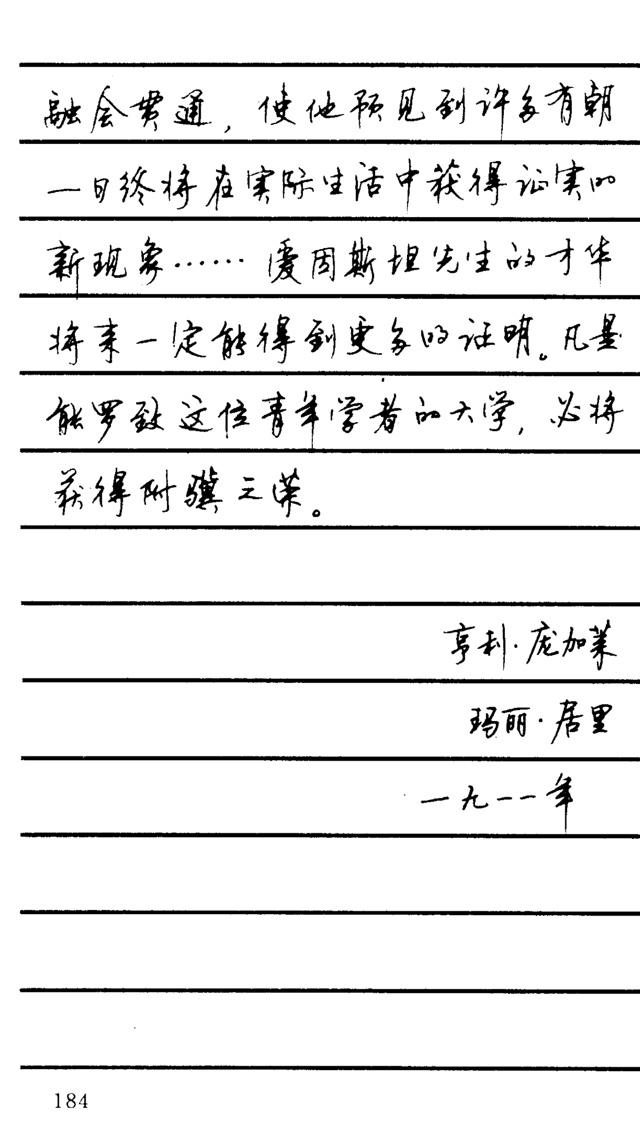 融会贯通，使他预见到许多有朝
一日终将在实际生活中获得证实的
新现象……爱因斯坦先生的才华
将来一定能得到更多的证明。凡是
能罗致这位青年学者的大学，必将
获得附骥之荣。
亨利·庞加莱
玛丽·居里
一九一一年
184